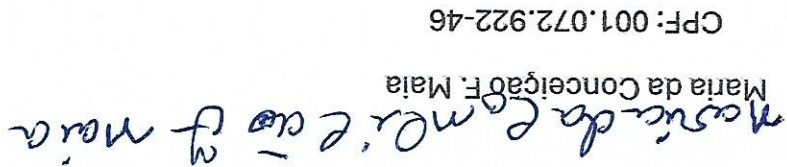 Maria da Conceição F Maia
Maria da Conceição F. Maia
CPF: 001.072.922-46